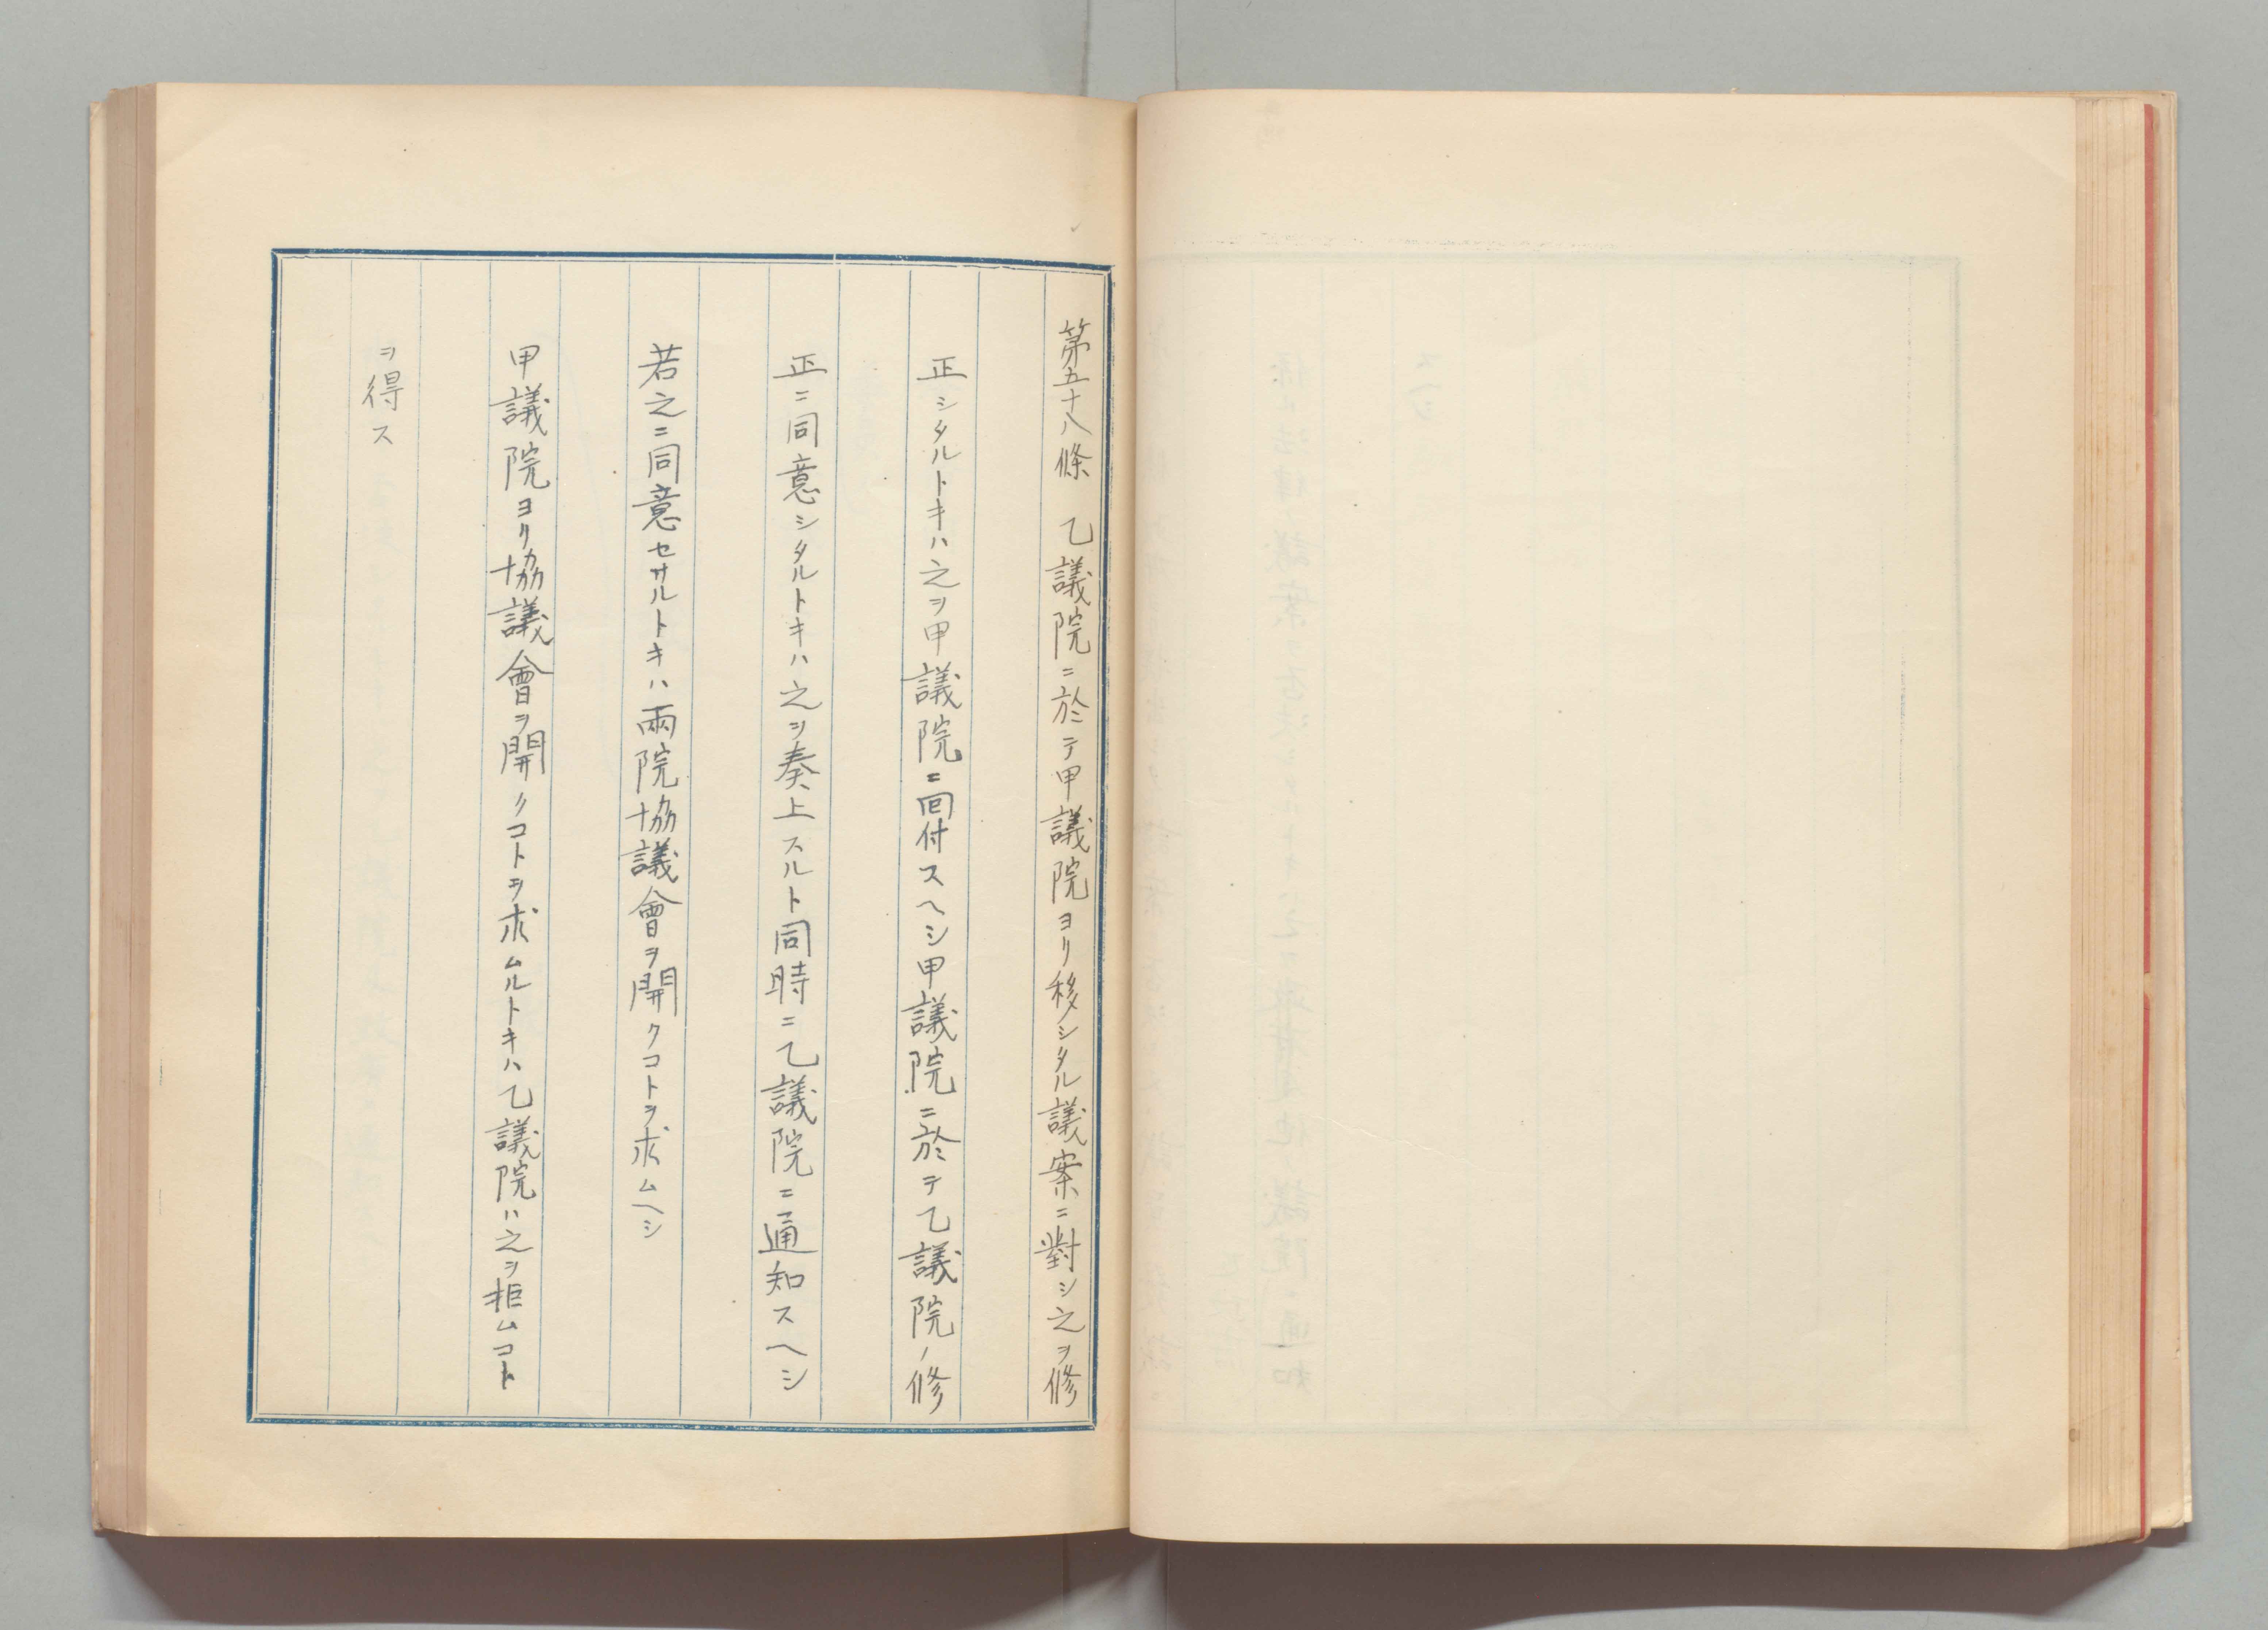 第五十八條　乙議院ニ於テ甲議院ヨリ移シタル議案ニ對シ之ヲ修
正シタルトキハ之ヲ甲議院ニ回付スヘシ甲議院ニ於テ乙議院ノ修
正ニ同意シタルトキハ之ヲ奏上スルト同時ニ乙議院ニ通知スヘシ
若之ニ同意セサルトキハ兩院協議會ヲ開クコトヲ求ムヘシ
甲議院ヨリ協議會ヲ開クコトヲ求ムルトキハ乙議院ハ之ヲ拒ムコト
ヲ得ス